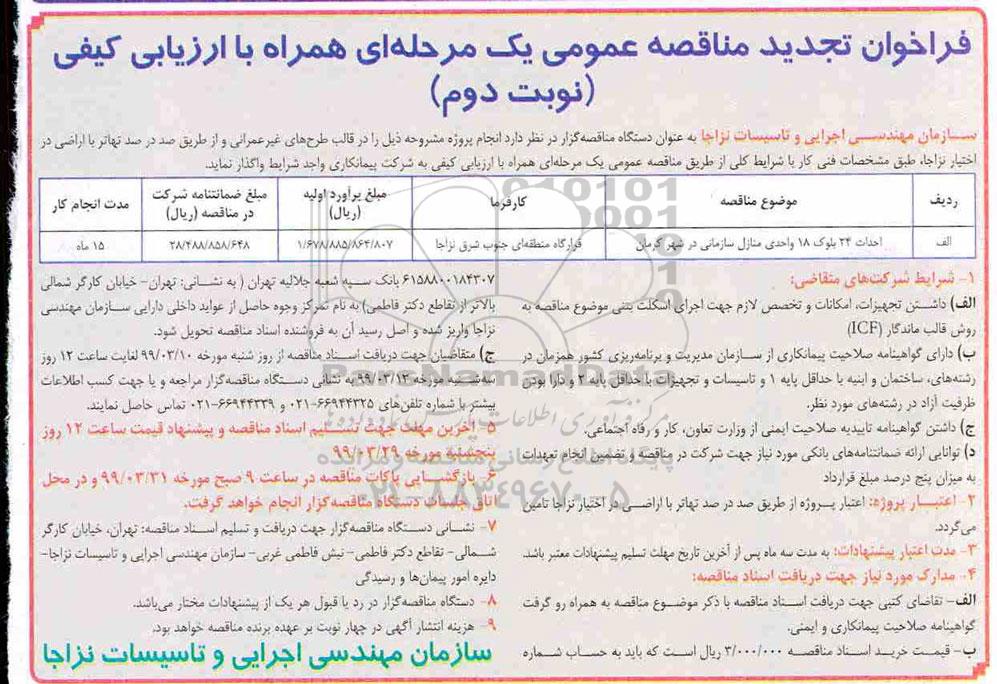 فراخوان تجدید مناقصه عمومی یک مرحله‌ای همراه با ارزیابی کیفی
(نوبت دوم)
سازمان مهندسی اجرایی و تاسیسات نزاجا به عنوان دستگاه مناقصه‌گزار در نظر دارد انجام پروژه مشروحه ذیل را در قالب طرح‌های غیرعمرانی و از طریق صد در صد تهاتر با اراضی در
اختیار نزاجا، طبق مشخصات فنی کار با شرایط کلی از طریق مناقصه عمومی یک مرحله‌ای همراه با ارزیابی کیفی به شرکت پیمانکاری واجد شرایط واگذار نماید.
ردیف موضوع مناقصه کارفرما مبلغ برآورد اولیه (ریال) مبلغ ضمانتنامه شرکت در مناقصه (ریال) مدت انجام کار
الف احداث ۲۴ بلوک ۱۸ واحدی منازل سازمانی در شهر کرمان قرارگاه منطقه‌ای جنوب شرق نزاجا ۱/۶۷۸/۸۸۵/۸۶۴/۸۰۷ ۲۸/۴۸۸/۸۵۸/۶۴۸ ۱۵ ماه
۱- شرایط شرکت‌های متقاضی:
الف) داشتن تجهیزات، امکانات و تخصص لازم جهت اجرای اسکلت بتنی موضوع مناقصه به
روش قالب ماندگار (ICF)
ب) دارای گواهینامه صلاحیت پیمانکاری از سازمان مدیریت و برنامه‌ریزی کشور همزمان در
رشته‌های، ساختمان و ابنیه با حداقل پایه ۱ و تاسیسات و تجهیزات با حداقل پایه ۲ و دارا بودن
ظرفیت آزاد در رشته‌های مورد نظر.
ج) داشتن گواهینامه تاییدیه صلاحیت ایمنی از وزارت تعاون، کار و رفاه اجتماعی.
د) توانایی ارائه ضمانتنامه‌های بانکی مورد نیاز جهت شرکت در مناقصه و تضمین انجام تعهدات
به میزان پنج درصد مبلغ قرارداد
۲- اعتبار پروژه: اعتبار پروژه از طریق صد در صد تهاتر با اراضی در اختیار نزاجا تامین
می‌گردد.
۳- مدت اعتبار پیشنهادات: به مدت سه ماه پس از آخرین تاریخ مهلت تسلیم پیشنهادات معتبر باشد.
۴- مدارک مورد نیاز جهت دریافت اسناد مناقصه:
الف- تقاضای کتبی جهت دریافت اسناد مناقصه با ذکر موضوع مناقصه به همراه رو گرفت
گواهینامه صلاحیت پیمانکاری و ایمنی.
ب- قیمت خرید اسناد مناقصه ۳/۰۰۰/۰۰۰ ریال است که باید به حساب شماره
۶۱۵۸۸۰۰۱۸۴۳۰۷ بانک سپه شعبه جلالیه تهران ( به نشانی: تهران- خیابان کارگر شمالی
بالاتر از تقاطع دکتر فاطمی) به نام تمرکز وجوه حاصل از عواید داخلی دارایی سازمان مهندسی
نزاجا واریز شده و اصل رسید آن به فروشنده اسناد مناقصه تحویل شود.
ج) متقاضیان جهت دریافت اسناد مناقصه از روز شنبه مورخه ۹۹/۰۳/۱۰ لغایت ساعت ۱۲ روز
سه‌شنبه مورخه ۹۹/۰۳/۱۳ به نشانی دستگاه مناقصه‌گزار مراجعه و یا جهت کسب اطلاعات
بیشتر با شماره تلفن‌های ۶۶۹۴۴۳۲۵-۰۲۱ و ۶۶۹۴۴۳۳۹-۰۲۱ تماس حاصل نمایند.
۵- آخرین مهلت جهت تسلیم اسناد مناقصه و پیشنهاد قیمت ساعت ۱۲ روز
پنجشنبه مورخه ۹۹/۰۳/۲۹
۶- بازگشایی پاکات مناقصه در ساعت ۹ صبح مورخه ۹۹/۰۳/۳۱ و در محل
اتاق جلسات دستگاه مناقصه‌گزار انجام خواهد گرفت.
۷- نشانی دستگاه مناقصه‌گزار جهت دریافت و تسلیم اسناد مناقصه: تهران، خیابان کارگر
شمالی- تقاطع دکتر فاطمی- نبش فاطمی غربی- سازمان مهندسی اجرایی و تاسیسات نزاجا-
دایره امور پیمان‌ها و رسیدگی
۸- دستگاه مناقصه‌گزار در رد یا قبول هر یک از پیشنهادات مختار می‌باشد.
۹- هزینه انتشار آگهی در چهار نوبت بر عهده برنده مناقصه خواهد بود.
سازمان مهندسی اجرایی و تاسیسات نزاجا
ParsNamadData
پایگاه اطلاع رسانی مناقصه و مزایده